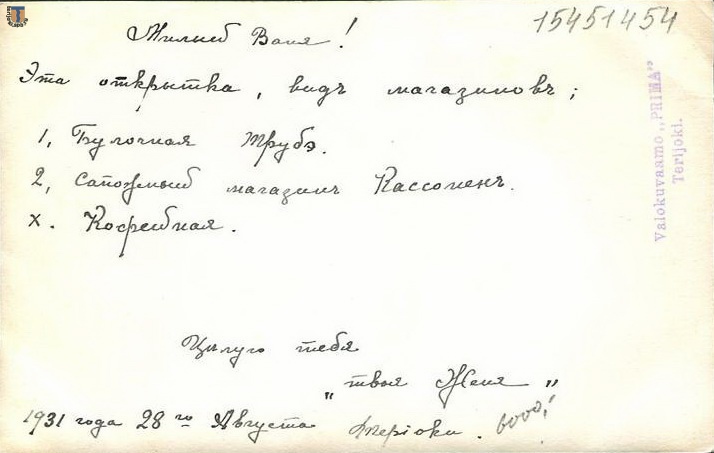 15451454
Милый Ваня!
Эта открытка, видъ магазиновъ;
1, Булочная Трубэ.
2, Сапожный магазинъ Кассоненъ.
x. Кофейная.
Цѣлую тебя
„твоя Женя„
1931 года 28го Августа Терiоки.
Valokuvaamo „PRIMA”
Terijoki.